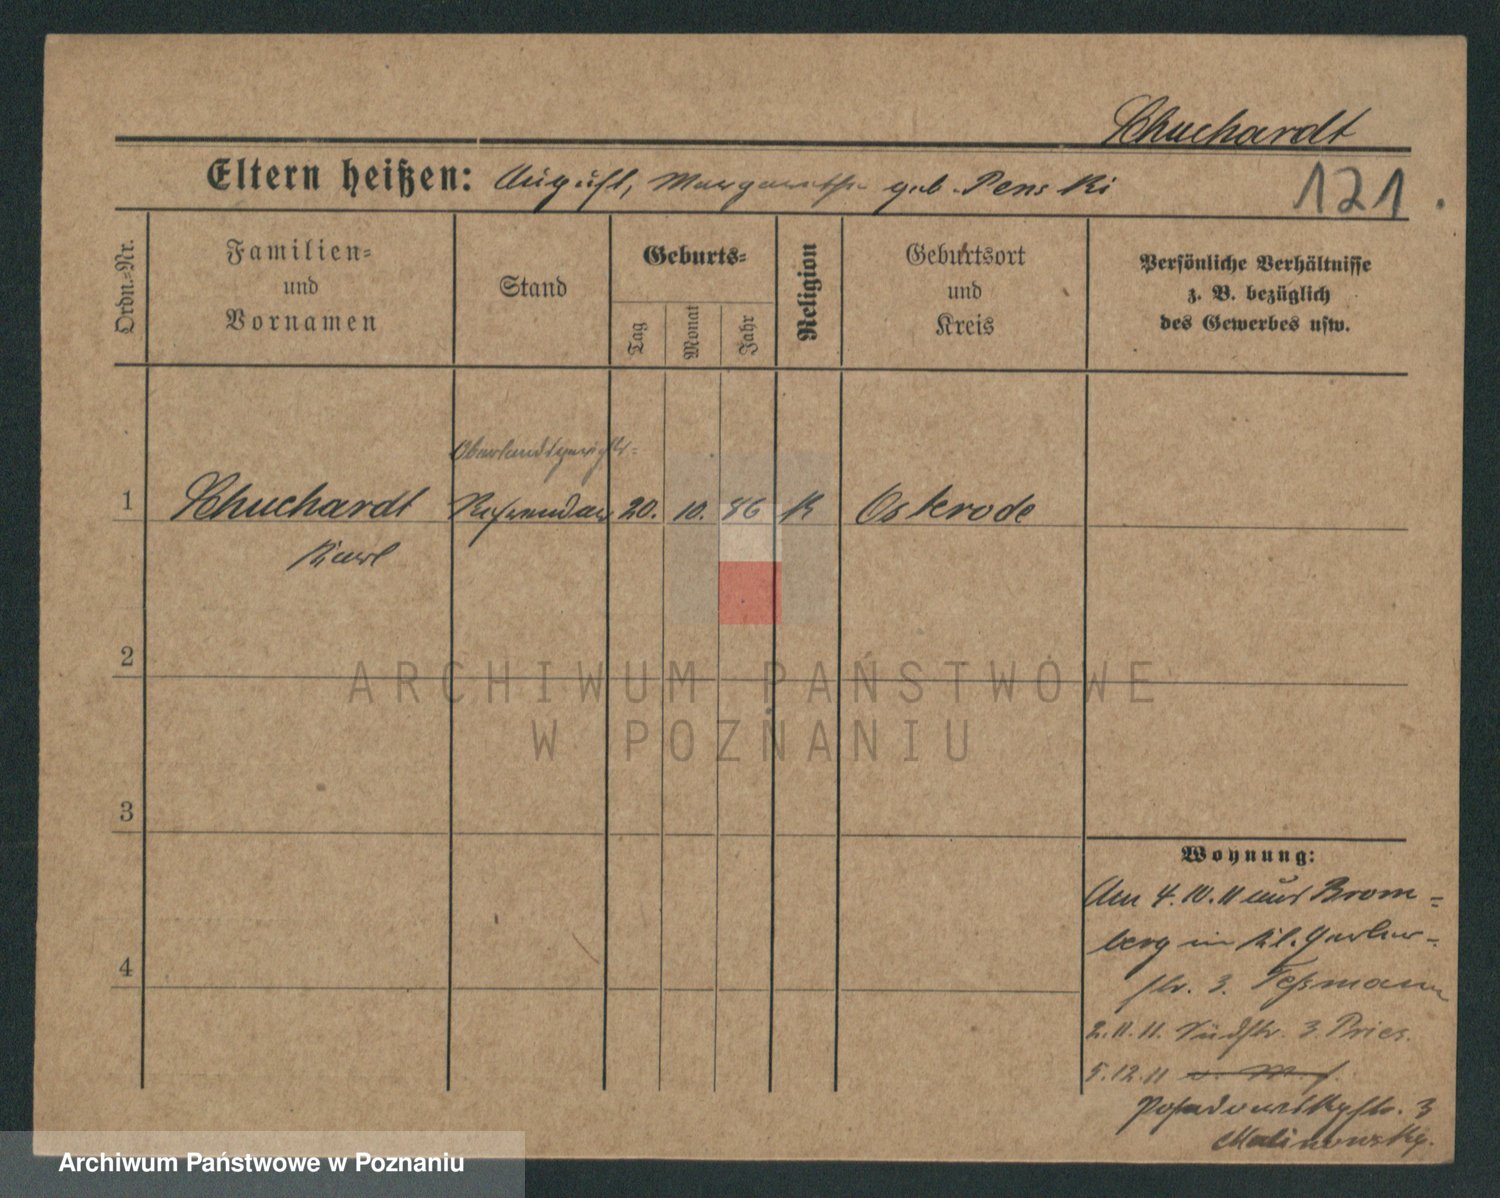 Schuchardt
Eltern heißen: August, Margarethe geb. Penski
121.
Ordn.=Nr.
Familien=
und
Vornamen
Stand
Geburts=
Tag
Monat
Jahr
Religion
Geburtsort
und
Kreis
Persönliche Verhältnisse
z. B. bezüglich
des Gewerbes usw.
Oberlandsgerichts-
1 Schuchardt Referendar 20. 10. 86 K Osterode
Karl
2
ARCHIWUM PAŃSTWOWE
W POZNANIU
3
4
Wohnung:
Am 4.10.11 aus Brom=
berg in Kl. Gerber=
str. 3. Teßmann
2.11.11. Südstr. 3. Pries.
5.12.11
Posadowskystr. 3
Malinowsky.
Archiwum Państwowe w Poznaniu